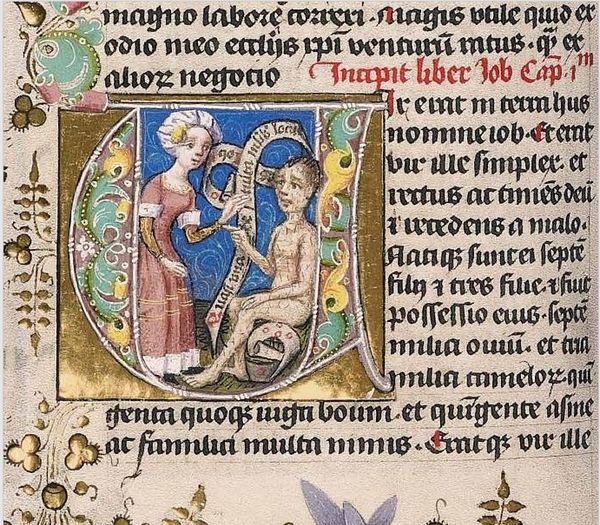 magno labore correxi. Magis utile quid ex
odio meo ecclijs xpi venturu ratus. qz ex
alior negotio Incipit liber Iob Cap. im
Ir erat in terra hus
nomine iob. Et erat
vir ille simplex. et
rectus ac timēs deū
& recedens a malo.
Natiqz sunt ei septē
filij & tres filie. & fuit
possessio eius. septē
milia oviū. et tria
milia camelorz. quī
genta quoqz iuga boum. et quīgente asine
ac familia multa nimis. Eratqz vir ille